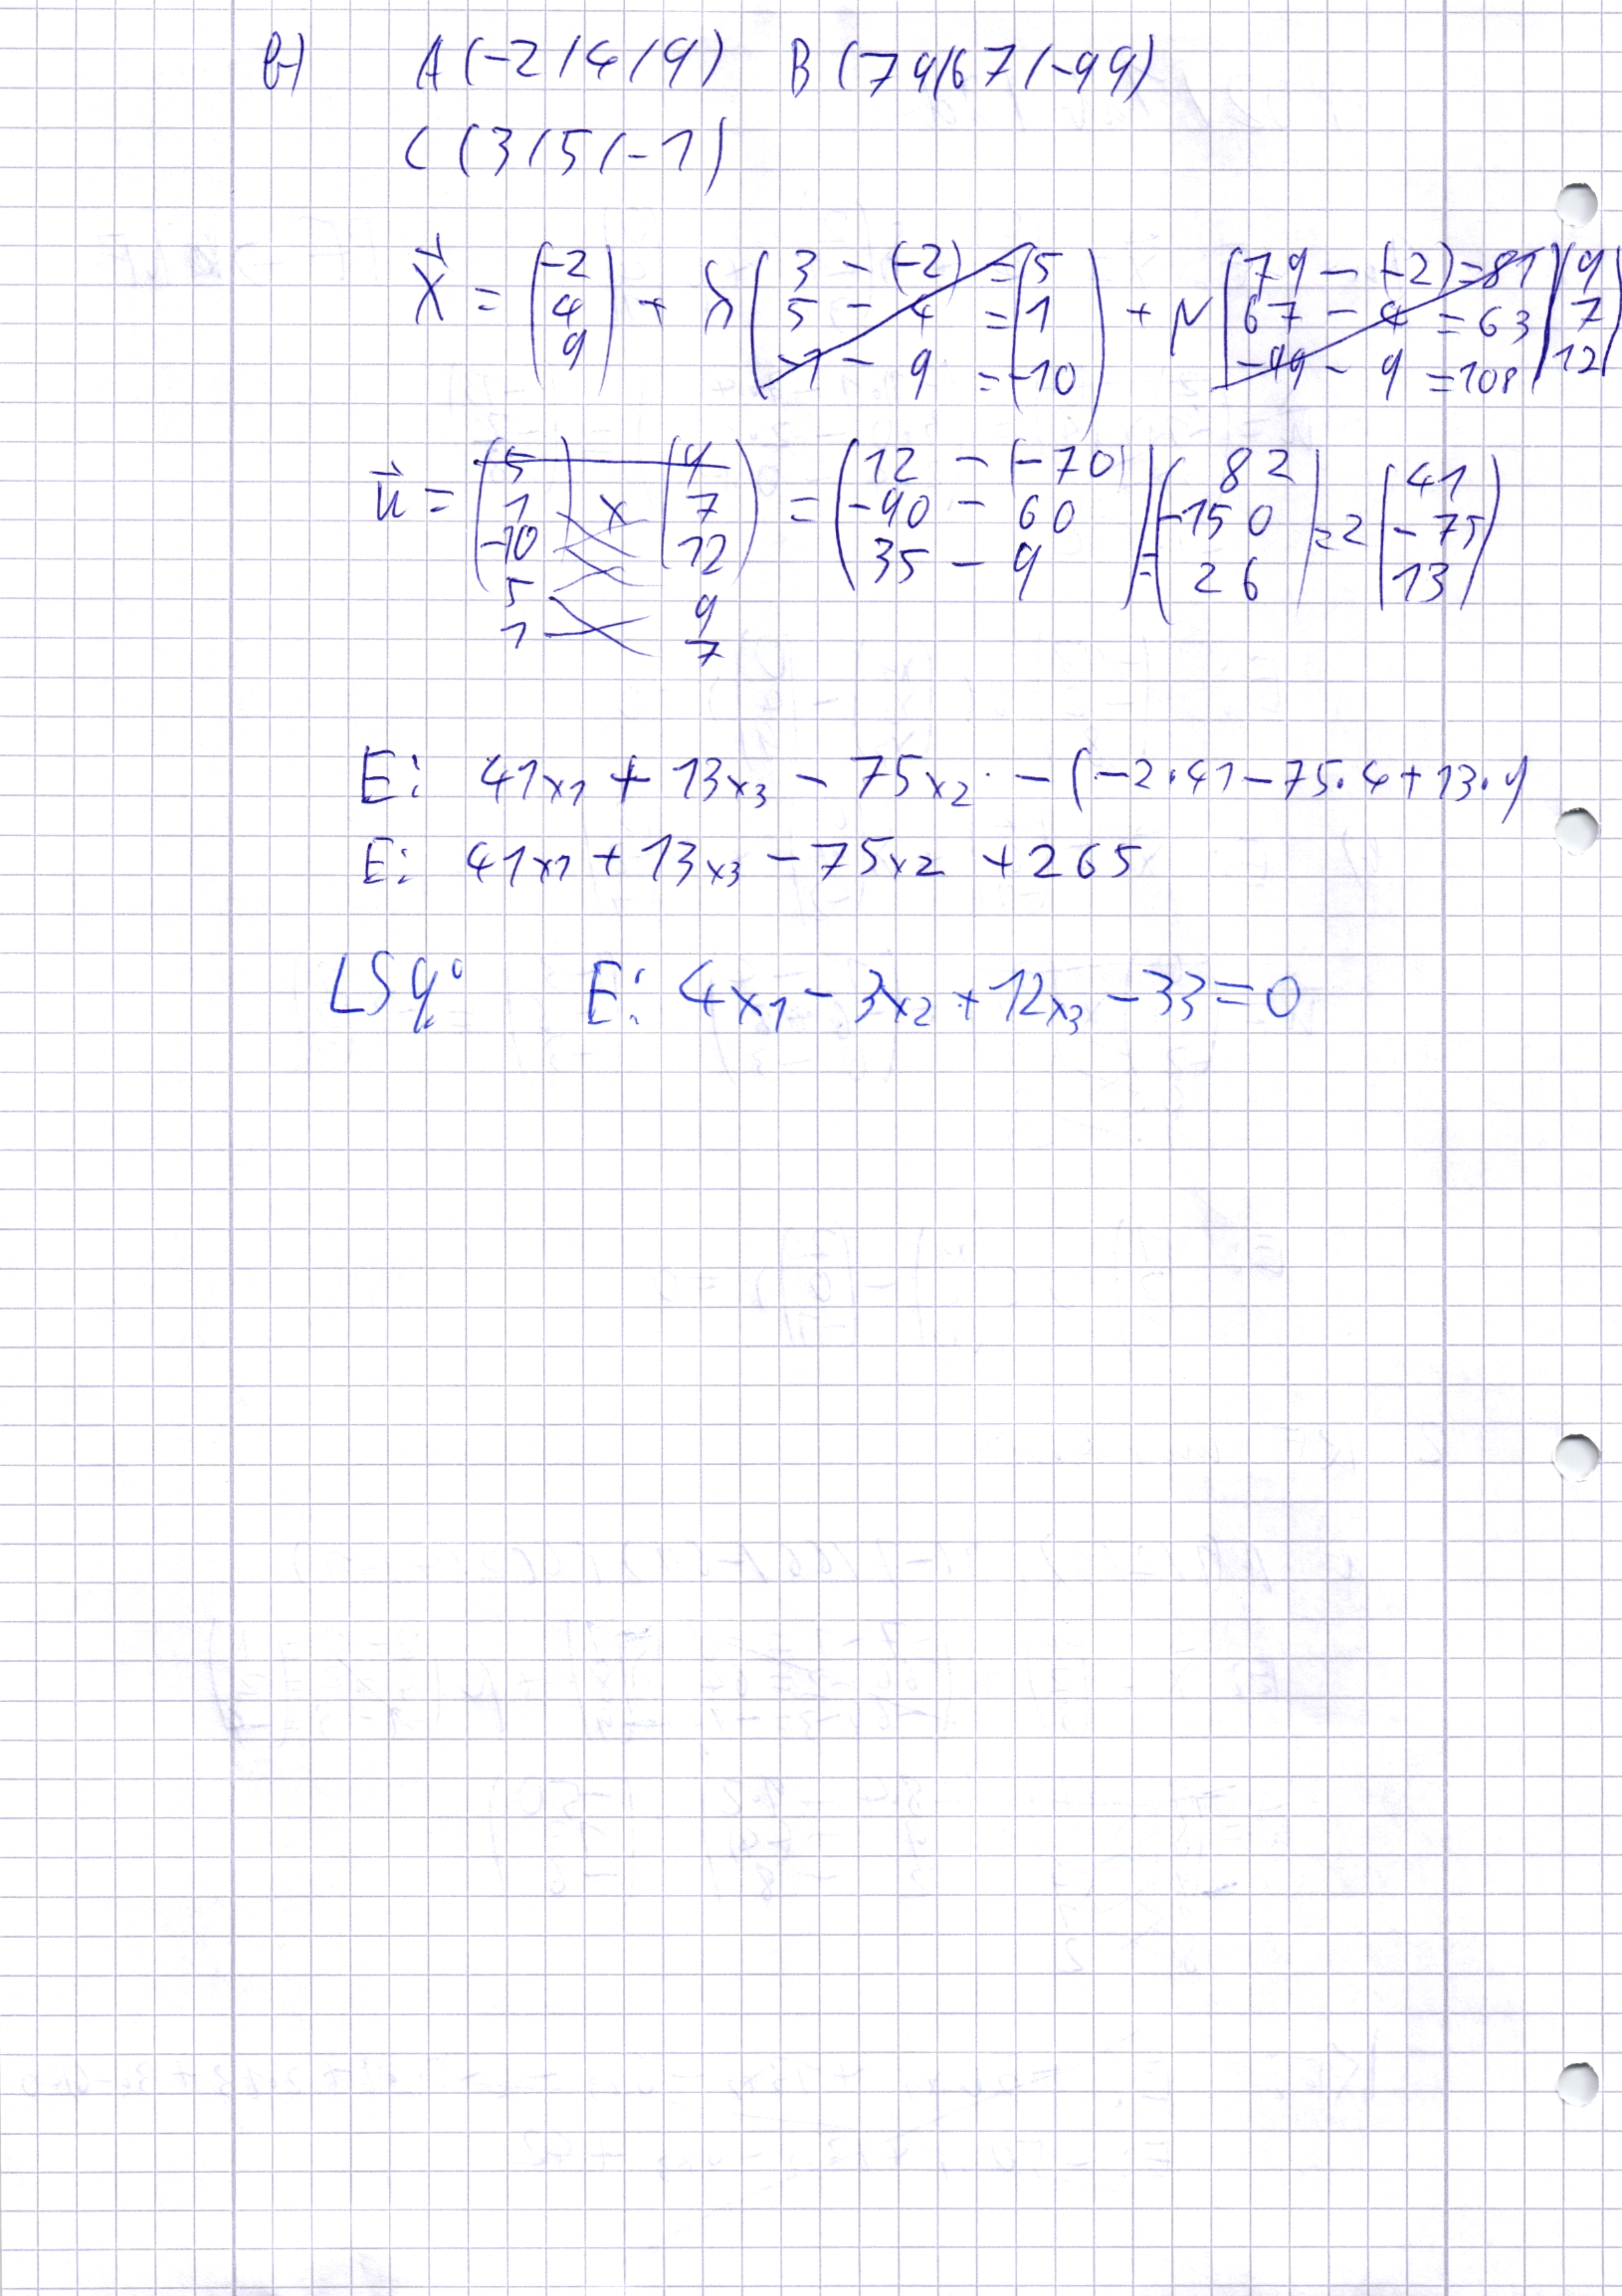 b) A (-2/4/9) B (79/67/-99)
C (3/5/-1)
X⃗ = (-2 4 9) + λ (3 - (-2) = 5 5 - 4 = 1 -1 - 9 = -10) + μ (79 - (-2) = 81 67 - 4 = 63 -99 - 9 = 108) (9 7 12)
n⃗ = (5 1 -10) × (9 7 12) = (12 - (-70) -90 - 60 35 - 9) = (82 -150 26) = 2 (41 -75 13)
5 9
1 7
E: 41x₁ + 13x₃ - 75x₂ - (-2·41-75·4+13·9)
E: 41x₁ + 13x₃ - 75x₂ + 265
LSg: E: 4x₁ - 3x₂ + 12x₃ - 33 = 0